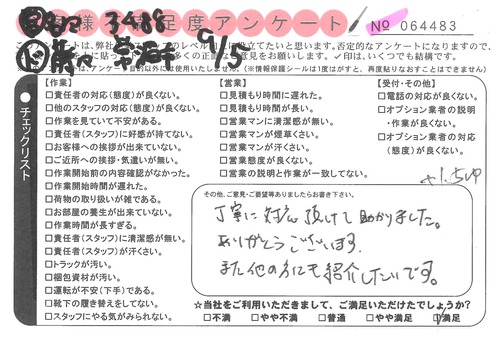 お客様満足度アンケート
3488
9/5
No 064483
チェックリスト
【作業】
□責任者の対応(態度)が良くない。
□他のスタッフの対応(態度)が良くない。
□作業を見ていて不安がある。
□責任者(スタッフ)に好感が持てない。
□お客様への挨拶が出来ていない。
□ご近所への挨拶・気遣いが無い。
□作業開始前の内容確認がなかった。
□作業開始時間が遅れた。
□荷物の取り扱いが雑である。
□お部屋の養生が出来ていない。
□作業時間が長すぎる。
□責任者(スタッフ)に清潔感が無い。
□責任者(スタッフ)が汗くさい。
□トラックが汚い。
□梱包資材が汚い。
□運転が不安(下手)である。
□靴下の履き替えをしてない。
□スタッフにやる気がみられない。
【営業】
□見積もり時間に遅れた。
□見積もり時間が長い。
□営業マンに清潔感が無い。
□営業マンが煙草くさい。
□営業マンが汗くさい。
□営業態度が良くない。
□営業の説明と作業が一致してない。
【受付・その他】
□電話の対応が良くない。
□オプション業者の説明・作業が良くない。
□オプション業者の対応(態度)が良くない。
その他、ご意見・ご要望等ありましたらお書き下さい。
丁寧に対応頂けて助かりました。
ありがとうございます。
また他の方にも紹介したいです。
☆当社をご利用いただきまして、ご満足いただけたでしょうか?
□不満 □やや不満 □普通 □やや満足 ☑満足